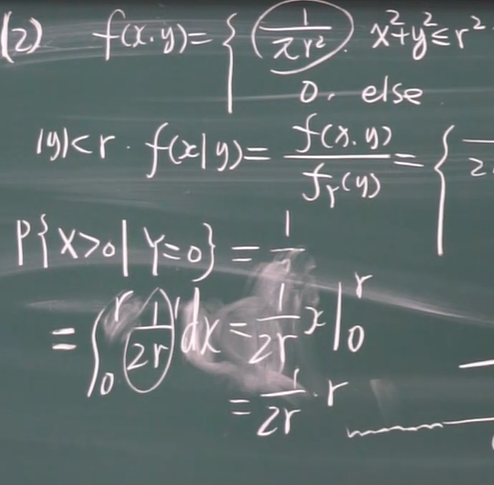 (2) f(x.y)={ 1/πr². x²+y²≤r²
0. else
|y|<r. f(x|y)= f(x.y)/f_Y(y) = {
P{X>0|Y=0} = 1/
= ∫₀^r 1/2r dx = 1/2r x|₀^r
= 1/2r · r